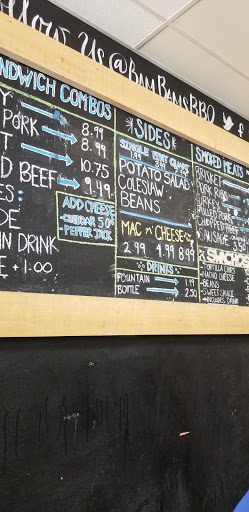 ollow Us @BAMBAMSBBQ
NDWICH COMBOS
Y 8.99
PORK 8.99
T 10.75
D BEEF 9.49
ES:
DE
IN DRINK
E +1.00
ADD CHEESE
-CHEDDAR 50¢
-PEPPER JACK
SIDES
POTATO SALAD
COLESLAW
BEANS
MAC 'N' CHEESE
2.99 4.99 8.99
DRINKS
FOUNTAIN 1.99
BOTTLE 2.50
SMOKED MEATS
BRISKET
PORK
TURKEY
SAUSAGE 3.50
TORTILLA CHIPS
NACHO CHEESE
BEANS
SWEET SAUCE
INCLUDES DRINK